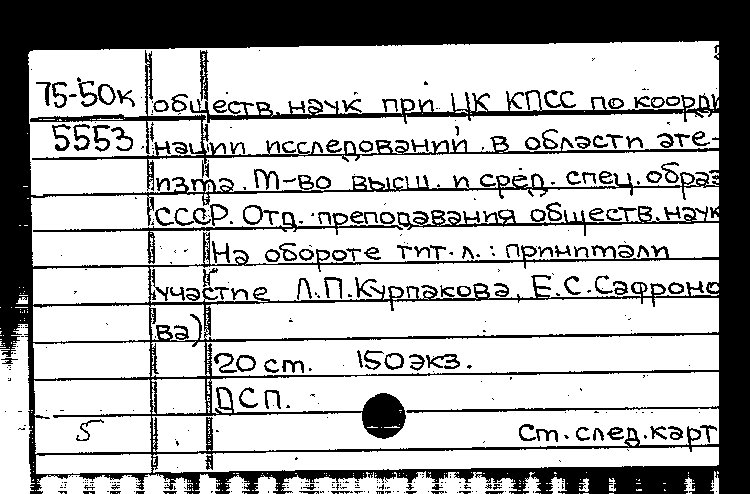 75-50к обществ. наук при ЦК КПСС по коорди
5553 нации исследований в области ате-
изма. М-во высш. и сред. спец. образ
СССР. Отд. преподавания обществ. наук
На обороте тит. л.: принимали
участие Л.П.Курпакова, Е.С.Сафроно
ва)
20 ст. 150 экз.
ДСП.
5
См. след. карт